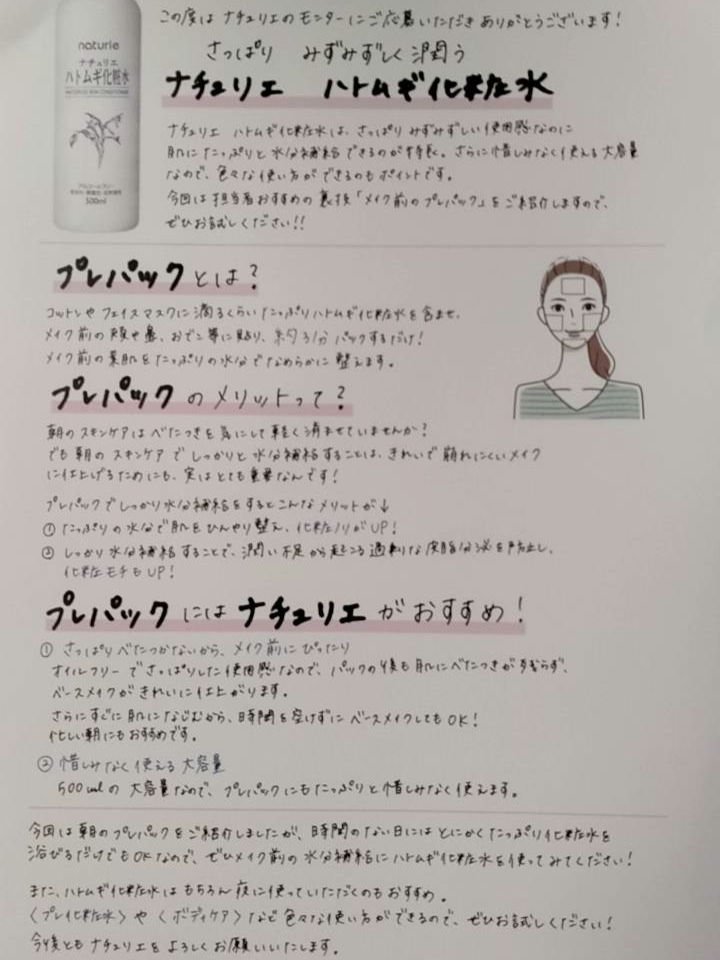 naturie
ナチュリエ
ハトムギ化粧水
500ml
この度は ナチュリエのモニターにご応募いただき ありがとうございます!
さっぱり みずみずしく潤う
ナチュリエ ハトムギ化粧水
ナチュリエ ハトムギ化粧水は、さっぱり みずみずしい使用感なのに
肌にたっぷりと水分補給できるのが特長。さらに惜しみなく使える大容量
なので、色々な使い方ができるのもポイントです。
今回は担当者おすすめの裏技「メイク前のプレパック」をご紹介しますので、
ぜひお試しください!!
プレパックとは?
コットンやフェイスマスクに滴るくらいたっぷりハトムギ化粧水を含ませ、
メイク前の頬や鼻、おでこ等に貼り、約3分パックするだけ!
メイク前の素肌をたっぷりの水分でなめらかに整えます。
プレパックのメリットって?
朝のスキンケアはべたつきを気にして軽く済ませていませんか?
でも朝のスキンケアでしっかりと水分補給することは、きれいで崩れにくいメイク
に仕上げるためにも、実はとても重要なんです!
プレパックでしっかり水分補給をするとこんなメリットが↓
① たっぷりの水分で肌をひんやり整え、化粧ノリがUP!
② しっかり水分補給することで、潤い不足から起こる過剰な皮脂分泌を防止し、
化粧モチもUP!
プレパックには ナチュリエがおすすめ!
① さっぱりべたつかないから、メイク前にぴったり
オイルフリーでさっぱりした使用感なので、パックの後も肌にべたつきが残らず、
ベースメイクがきれいに仕上がります。
さらにすぐに肌になじむから、時間を空けずにベースメイクしてもOK!
忙しい朝にもおすすめです。
② 惜しみなく使える大容量
500mlの大容量なので、プレパックにもたっぷりと惜しみなく使えます。
今回は朝のプレパックをご紹介しましたが、時間のない日にはとにかくたっぷり化粧水を
浴びるだけでもOKなので、ぜひメイク前の水分補給にハトムギ化粧水を使ってみてください!
また、ハトムギ化粧水はもちろん夜に使っていただくのもおすすめ。
〈プレ化粧水〉や〈ボディケア〉など色々な使い方ができるので、ぜひお試しください!
今後ともナチュリエをよろしくお願いいたします。